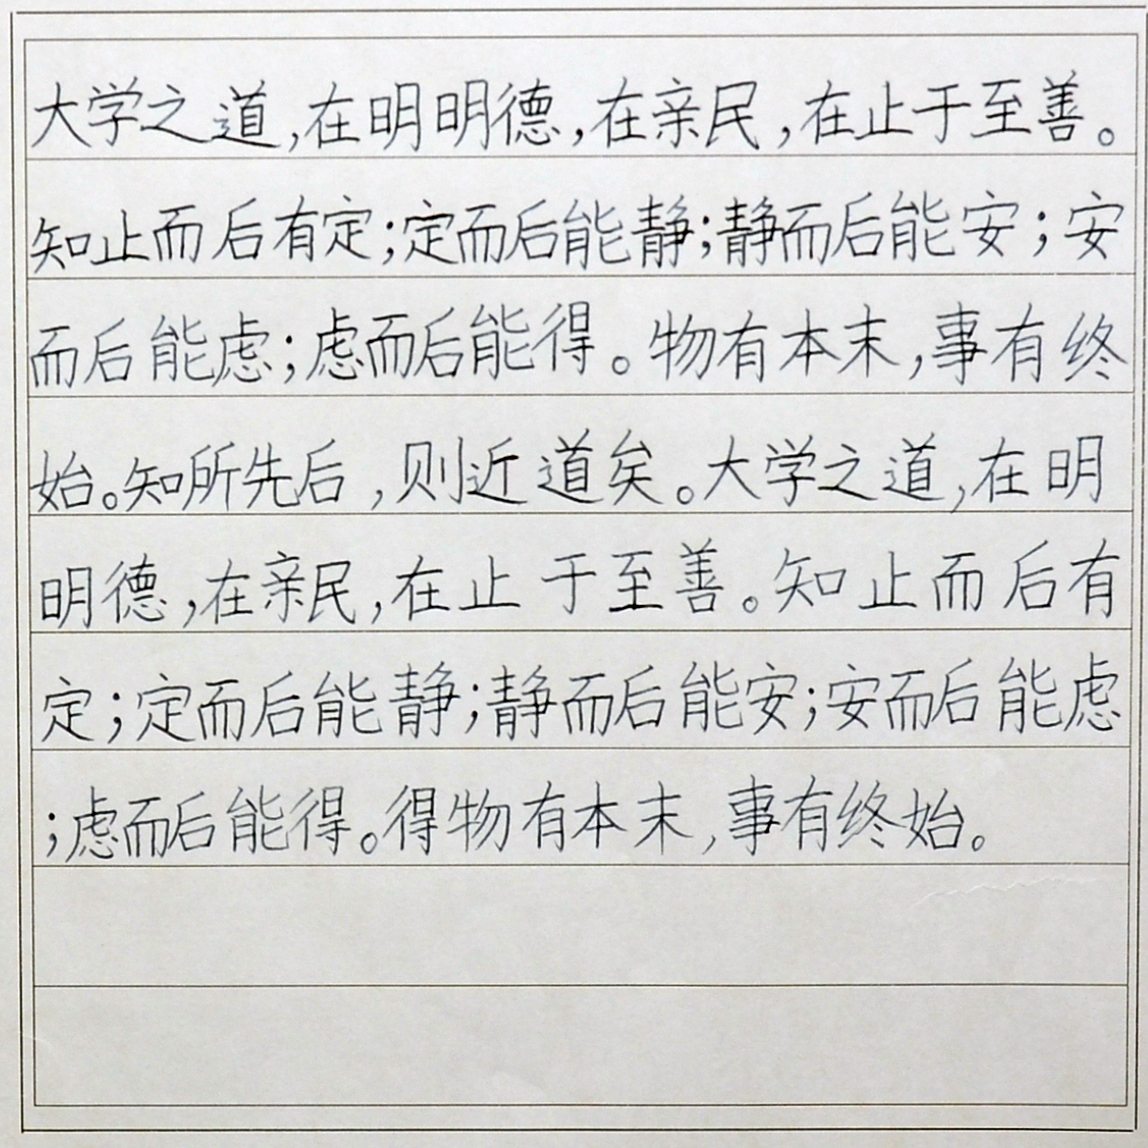 大学之道,在明明德,在亲民,在止于至善。
知止而后有定;定而后能静;静而后能安;安
而后能虑;虑而后能得。物有本末,事有终
始。知所先后,则近道矣。大学之道,在明
明德,在亲民,在止于至善。知止而后有
定;定而后能静;静而后能安;安而后能虑
;虑而后能得。得物有本末,事有终始。